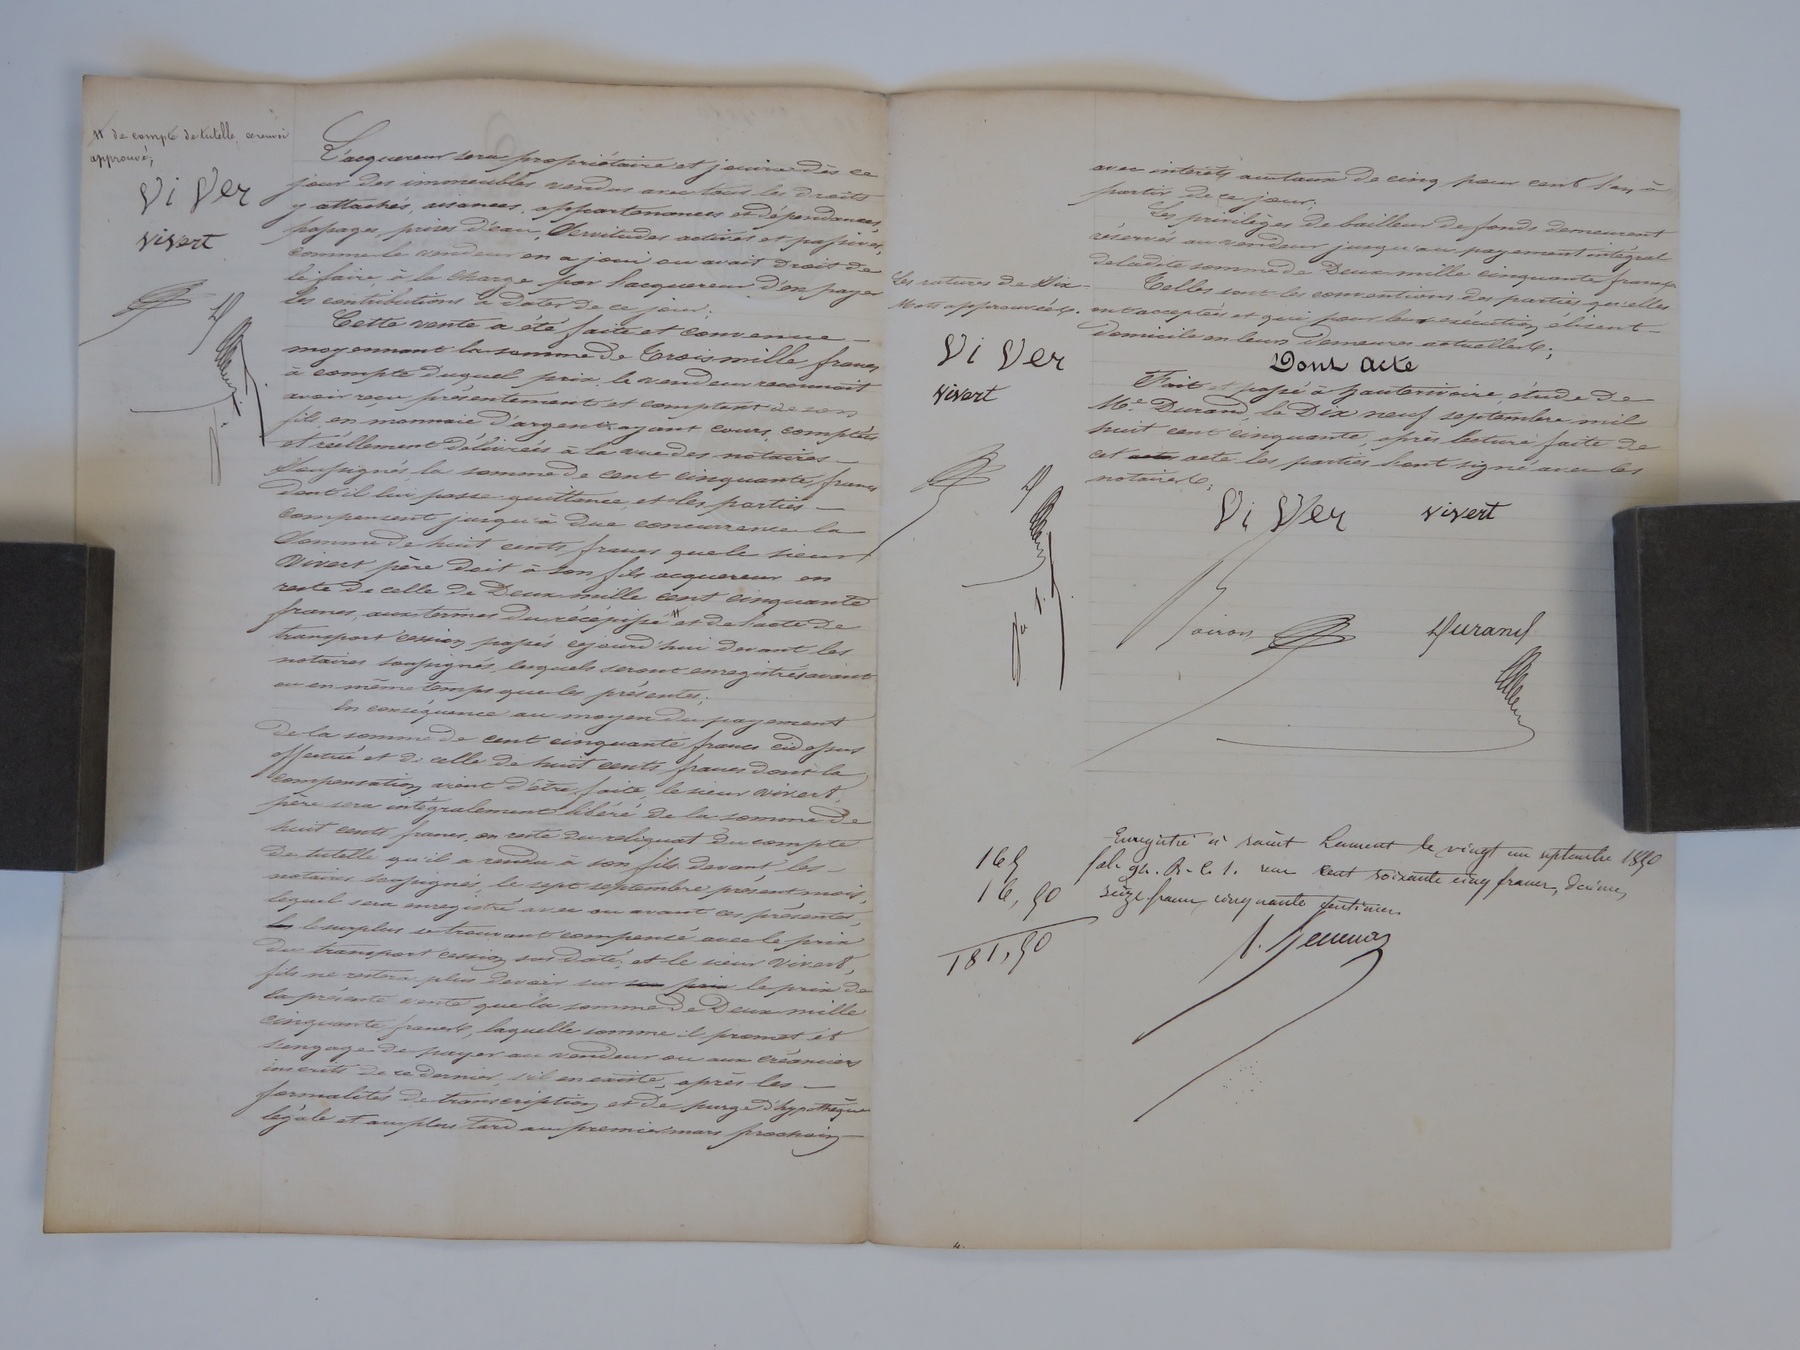 # de compte de tutelle, ce renvoi
approuvé;
Vi Ver
vivert
D
L'acquereur sera propriétaire et jouira dès ce
jour des immeubles vendus avec tous les droits
y attachés, aisances, appartenances et dépendances,
passages, prises d'eau, servitudes actives et passives,
comme le vendeur en a joui ou avait droit de
le faire, à la charge par l'acquereur d'en payer
les contributions à dater de ce jour;
Cette vente a été faite et convenue
moyennant la somme de trois mille francs
à compte duquel prix, le vendeur reconnait
avoir reçu présentement et comptant de son
fils, en monnaie d'argent ayant cours, comptés
et réellement délivrés à la vue des notaires
soussignés la somme de cent cinquante francs
dont il lui passe quittance, et les parties
compensent jusqu'à due concurrence la
somme de huit cents francs que le sieur
Vivert père doit à son fils acquereur en
reste de celle de Deux mille cent cinquante
francs, aux termes du récépissé # et de l'acte de
transport cession passés cejourd'hui devant les
notaires soussignés, lesquels seront enregistrés avant
ou en même temps que les présentes;
En conséquence au moyen du payement
de la somme de cent cinquante francs cidessus
effectué et de celle de huit cents francs dont la
compensation vient d'être faite, le sieur Vivert,
père sera intégralement libéré de la somme de
huit cents francs, en reste du reliquat du compte
de tutelle qu'il a rendu à son fils devant les
notaires soussignés, le sept septembre présent mois,
lequel sera enregistré avec ou avant ces présentes,
le surplus se trouvant compensé avec le prix
du transport cession sus daté, et le sieur Vivert,
fils ne restera plus devoir sur son prix le prix de
la présente vente que la somme de Deux mille
cinquante francs, laquelle somme il promet et
s'engage de payer au vendeur ou aux créanciers
inscrits de ce dernier, s'il en existe, après les
formalités de transcription et de purge d'hypothèque
légale et au plus tard au premier mars prochain
avec intérêts au taux de cinq pour cent l'an, à
partir de ce jour;
Les privilèges de bailleur de fonds demeurent
réservés au vendeur jusqu'au payement intégral
de ladite somme de Deux mille cinquante francs
Telles sont les conventions des parties qu'elles
ont acceptés et qui pour leur exécution élisent
domicile en leurs demeures actuelles;
Dont Acte
Fait et passé à hauterivoire, étude de
Me. Durand, le Dix neuf septembre mil
huit cent cinquante, après lecture faite de
cet acte les parties l'ont signé avec les
notaires;
Les ratures de Dix
Mots approuvées.
Vi Ver
vivert
D
Vi Ver vivert
Durand
Enregistré à saint Laurent le vingt un septembre 1850
fol. 92. R. C. 1. reçu cent soixante cinq francs, décime,
seize francs cinquante centimes
165
16,50
181,50